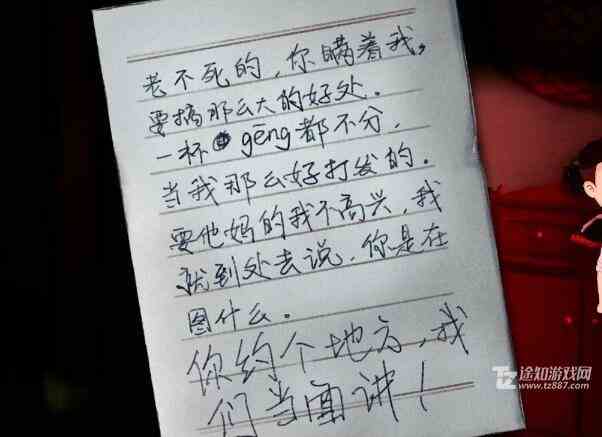 老不死的，你瞒着我，
要搞那么大的好处.
一杯 gēng都不分.
当我那么好打发的.
要他妈的我不高兴，我
就到处去说，你是在
图什么。
你约个地方，我
们当面讲！
途知游戏网
www.tz887.com